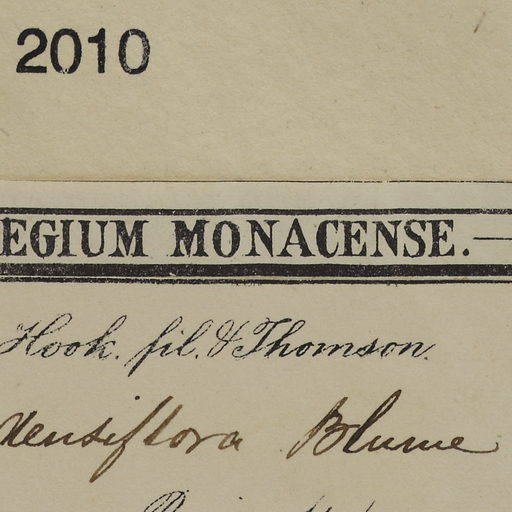 2010
EGIUM MONACENSE.—
Hook. fil. & Thomson.
densiflora Blume